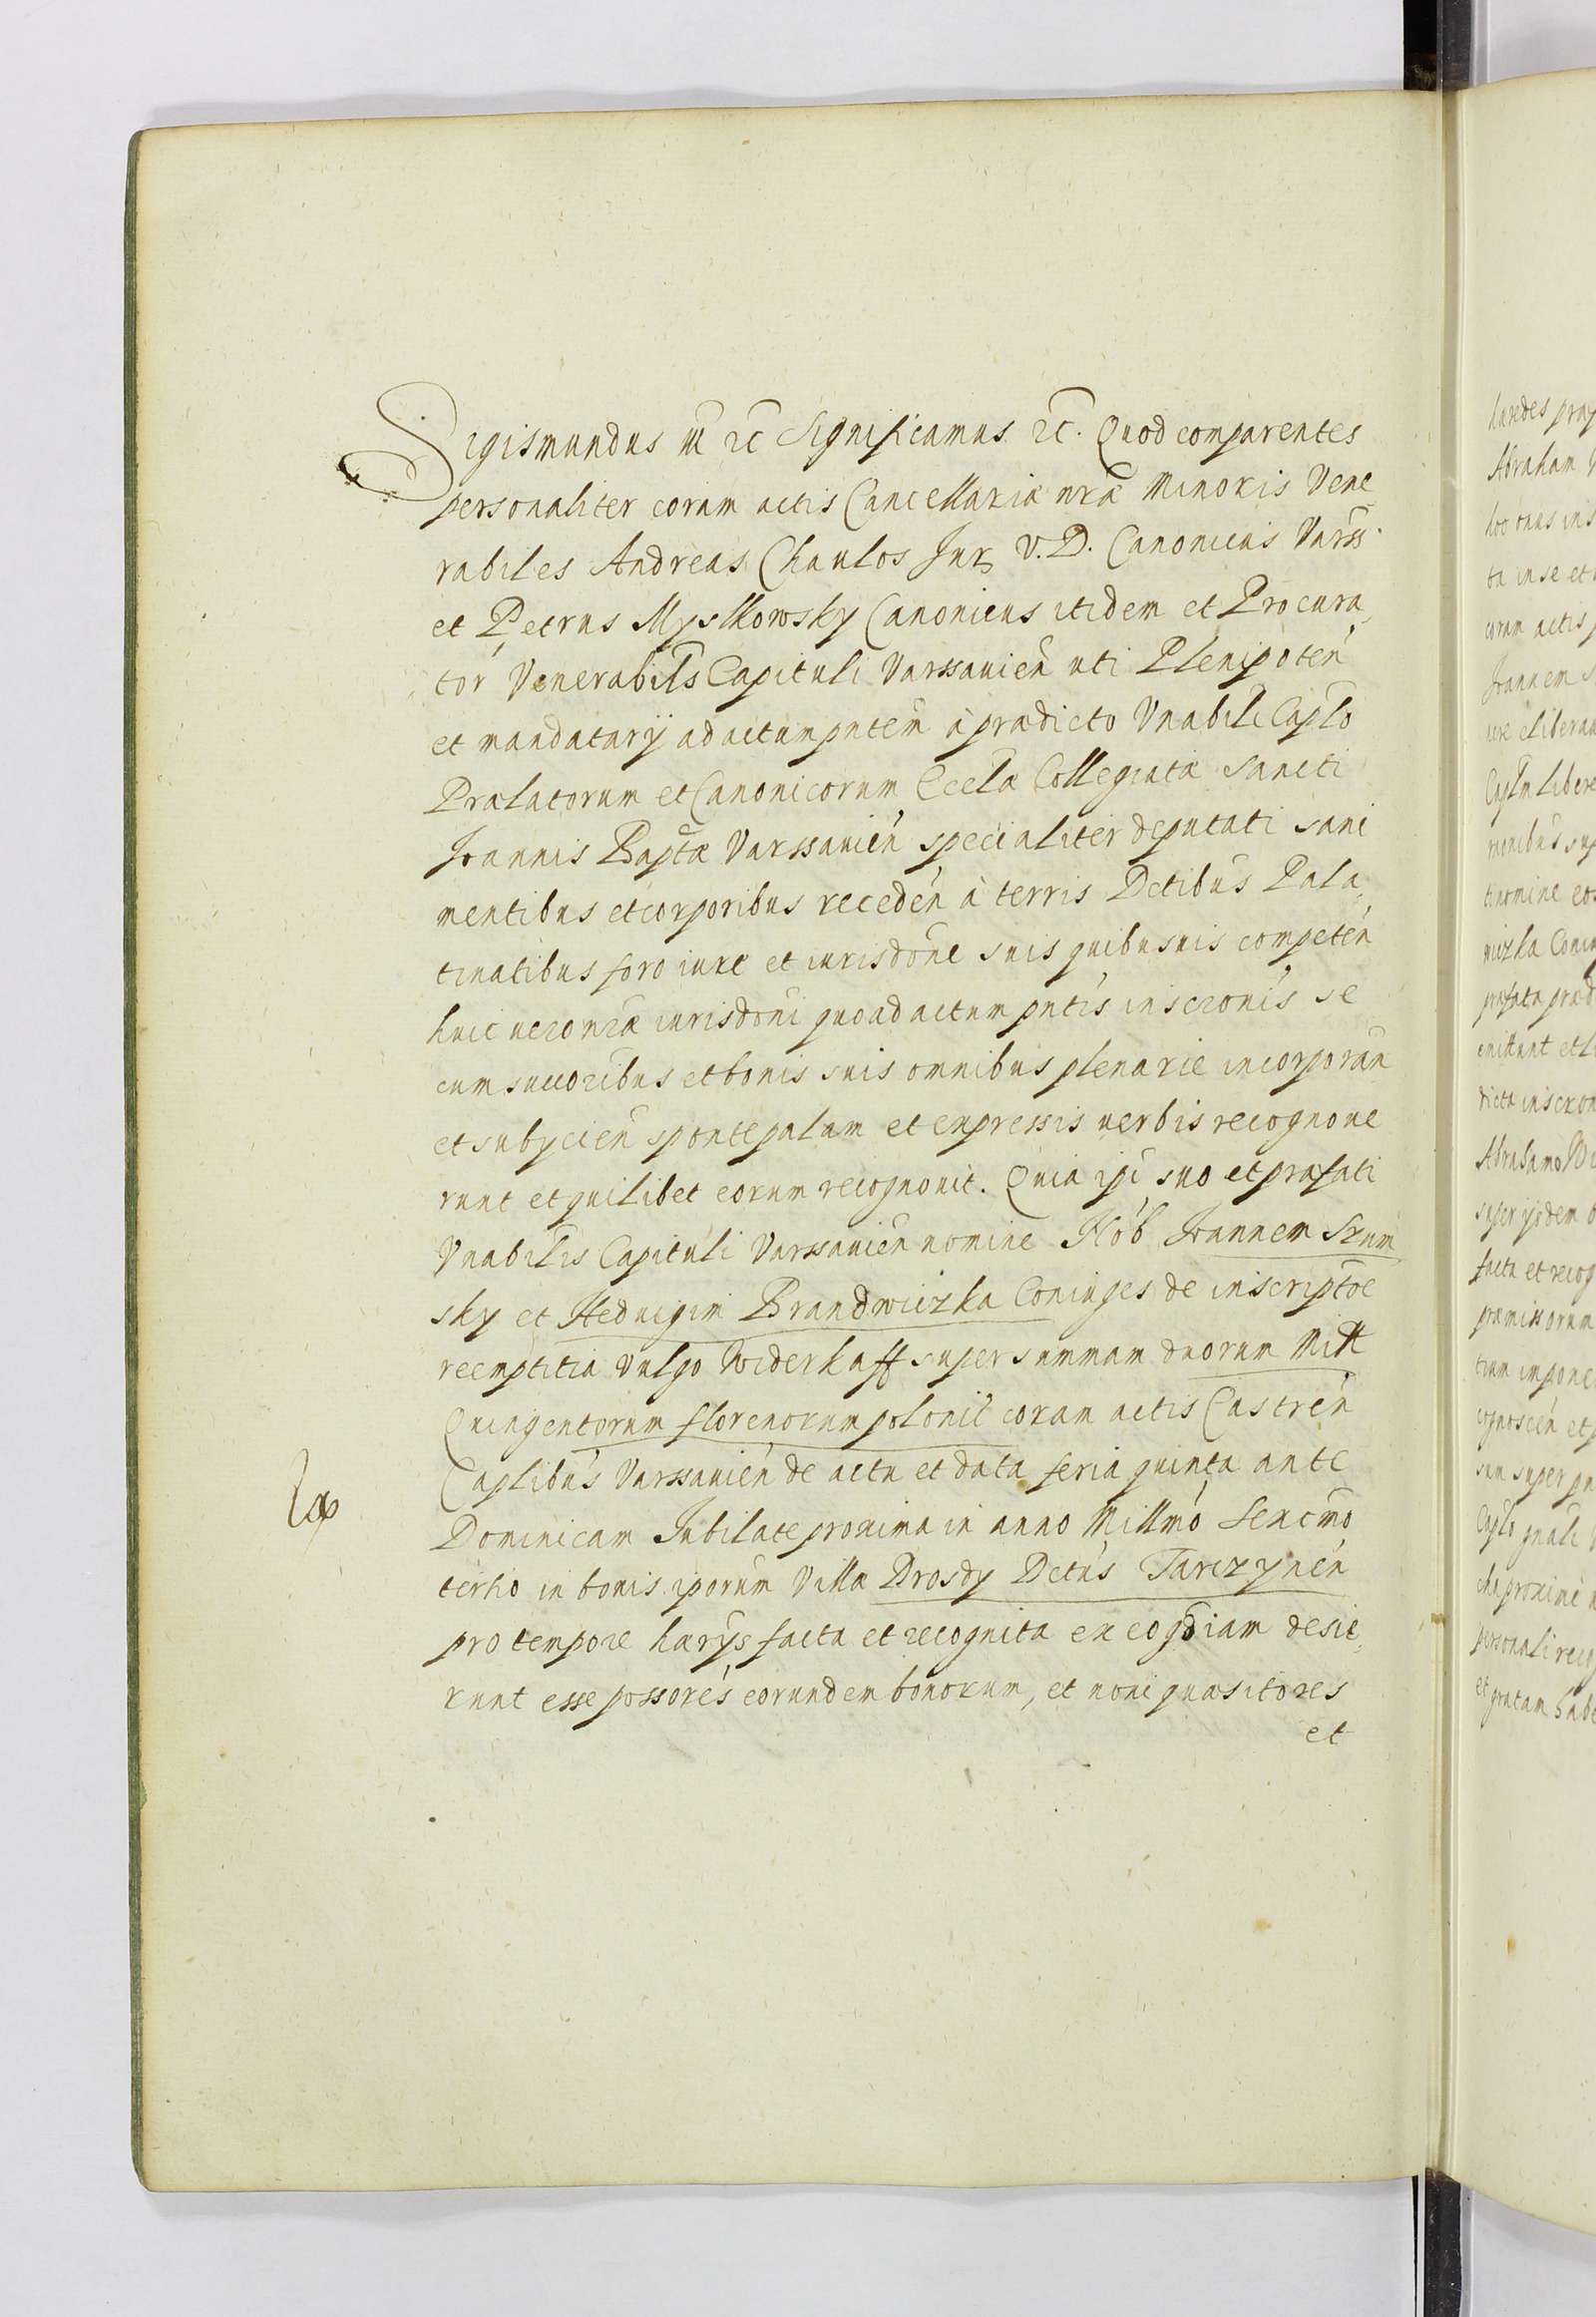 Sigismundus III &c Significamus &c. Quod comparentes
personaliter coram actis Cancellariæ nræ Minoris Vene
rabiles Andreas Chaulos Jur V. D. Canonicus Varss
et Petrus Myslkowsky Canonicus itidem et Procura,
tor Venerabils Capituli Varssauien uti Plenipoten
et mandatarij ad actum pntem à prædicto Vnabili Caplo
Prælatorum et Canonicorum Eccla Collegiatæ Sancti
Joannis Baptæ Varssauien specialiter deputati sani
mentibus et corporibus receden à terris Dctibus Pala,
tinatibus foro iure et iurisdone suis quibusuis competen
huic uero nræ iurisdoni quoad actum pntis inscronis se
cum succoribus et bonis suis omnibus plenarie incorporan
et subycien sponte palam et expressis uerbis recognoue
runt et quilibet eorum recognouit. Quia ipi suo et præfati
Vnabilis Capituli Varssauien nomine Nob Joannem Srum
sky et Heduigim Brandwiczka Coniuges de inscriptoe
reemptitia vulgo Widerkaff super summam duorum Mill
Quingentorum florenorum polonil coram actis Castren
Caplibus Varssauien de actu et data feria quinta ante
Dominicam Jubilate proxima in anno Millmo Sexcmo
tertio in bonis iporum Villa Drosdy Dctus Tarczynen
pro tempore hærijs facta et recognita ex eo qd iam desie,
runt esse possores eorundem bonorum, et noui quæsitores
et
hæredes præ
Abraham
hoc onus ins
ta in se et
coram actis
Joannem
Caplm libere
monibus sup
ti nomine eo
præfata præd
emittunt et
dicta inscron
Abrahamo
super ijsdem
facta et recog
præmissorum
tium impone
cognoscen et
sum super pn
Caplo gnali
cha proxime
personali reco
et gratam habe